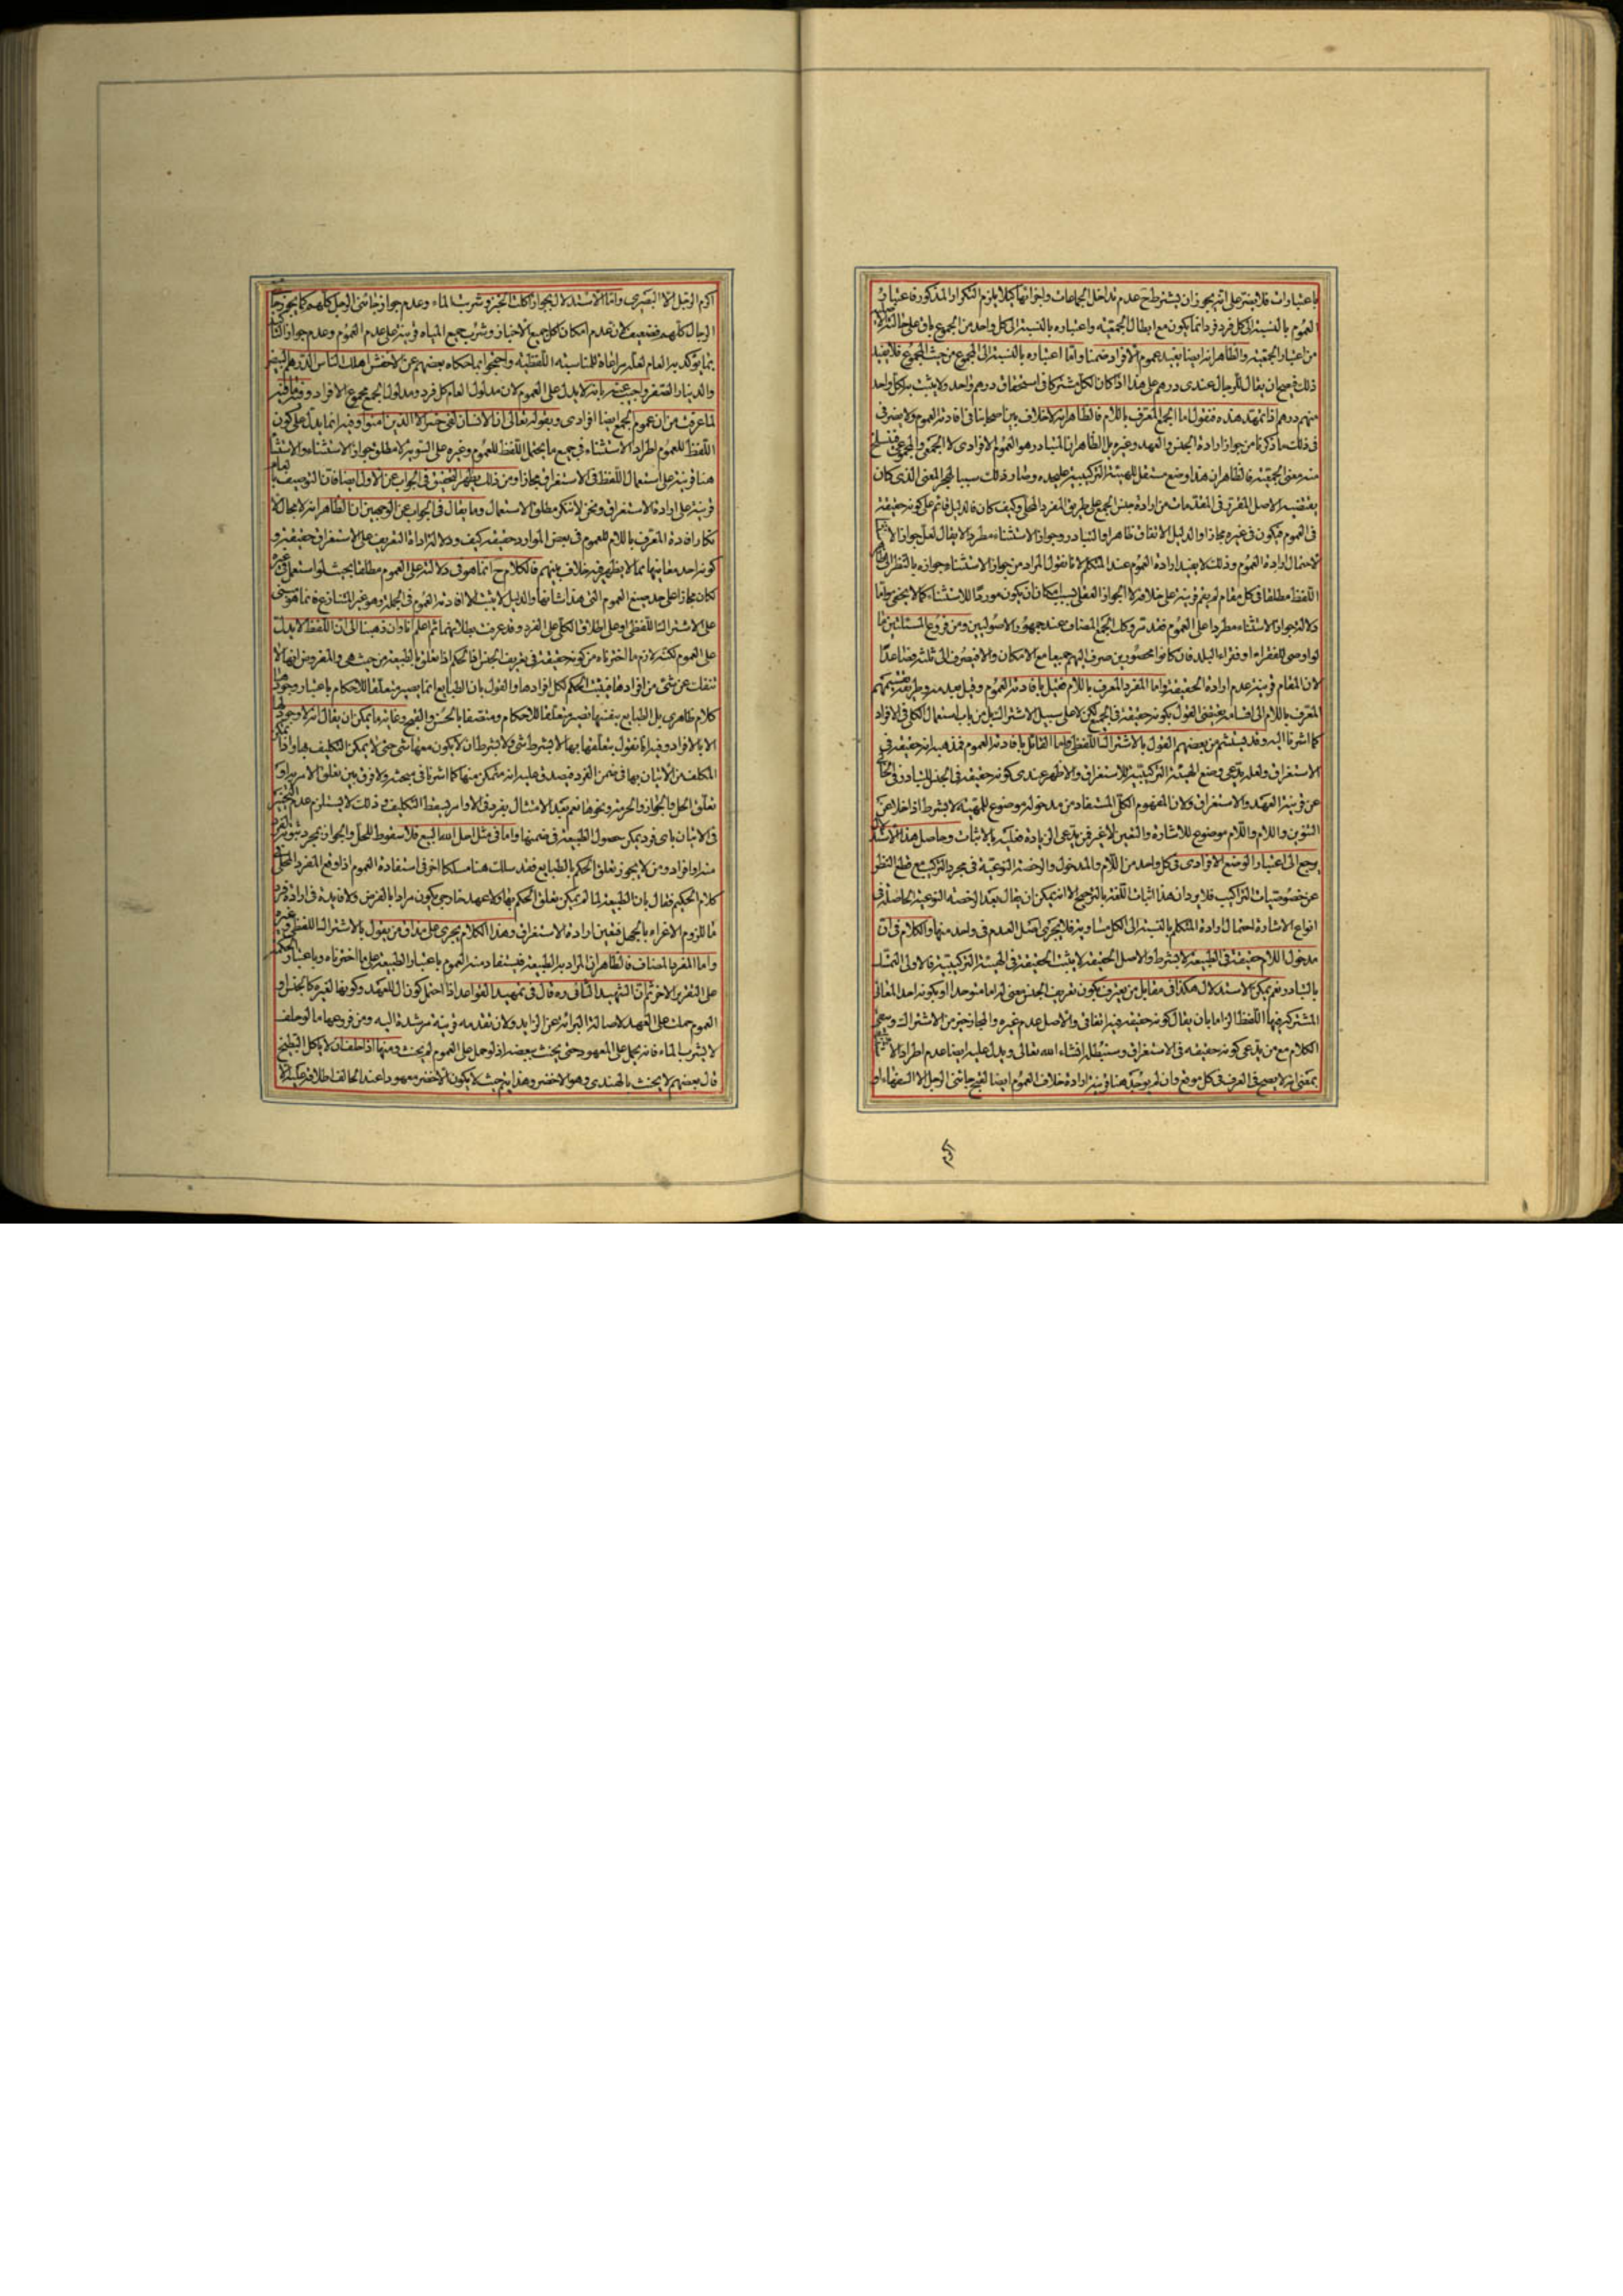 باعتبارات فلا يضر على انه يجوز ان يشترط ح عدم تداخل الجماعات واجزائها كيلا يلزم التكرار المذكور فاعتبار
العموم بالنسبة الى كل فرد فرد انما يكون مع ابطال الجمعية واعتباره بالنسبة الى كل واحد من المجموع باق على حاله
من اعتبار الجمعية والظاهر انه ايضا يفيد عموم الافراد ضمنا واما اعتباره بالنسبة الى المجموع من حيث المجموع فلا يفيد
ذلك فيصح ان يقال للرجال عندى درهم على هذا اذا كان الكل مشتركا فى استحقاق درهم واحد ولا يثبت به لكل واحد
منهم درهم اذا تمهد هذه فنقول اما الجمع المعرف باللام فالظاهر انه لا خلاف بين اصحابنا فى افادته العموم ولا يضر فى
فى ذلك ما ذكرنا من جواز ارادة الجنس والعهد وغيره بل الظاهر ان المتبادر هو العموم الافرادى لا الجمعى والمجموعى فينسلخ
منه معنى الجمعية فالظاهر ان هذا وضع مستقل للهيئة التركيبية على حده وصار ذلك سببا لهجر المعنى الذى كان
يقتضيه الاصل المقرر فى المقدمات من ارادة جنس الجمع على طريق المفرد المحلى وكيف كان فالدليل قائم على كونه حقيقة
فى العموم فيكون فى غيره مجازا والدليل الاتفاق ظاهرا والتبادر وجواز الاستثناء مطردا لا يقال لعل جواز الاستثناء
لاحتمال ارادة العموم وذلك لا يفيد ارادة العموم عند المتكلم لانا نقول المراد من جواز الاستثناء جوازه بالنظر الى ظاهر
اللفظ مطلقا فى كل مقام لم يقم قرينة على خلافه لا الجواز العقلى بسبب امكان ان يكون موردا للاستثناء كما لا يخفى واما
دلالة جواز الاستثناء مطردا على العموم فقد تر وكك الجمع المضاف عند جمهور الاصوليين ومن فروع المسئلتين ما
لو اوصى للفقراء او فقراء البلد فان كانوا محصورين صرف اليهم جميعا مع الامكان والا فيصرف الى ثلثة فصاعدا
لان المقام قرينة عدم ارادة الحقيقة واما المفرد المعرف باللام فقيل بافادته العموم وقيل بعدمه وطريقة تقسيمهم
المعرف باللام الى اقسامه يقتضى القول بكونه حقيقة فى الجميع لكن لا على سبيل الاشتراك بل من باب استعمال الكلى فى الافراد
كما اشرنا اليه وقد يستشم من بعضهم القول بالاشتراك اللفظى واما القائل بافادته العموم فمذهبه انه حقيقة فى
الاستغراق ولعله يدعى وضع الهيئة التركيبية للاستغراق والاظهر عندى كونه حقيقة فى الجنس للتبادر فى الخالى
عن قرينة العهد والاستغراق ولان المفهوم الكلى المستفاد من مدخوله موضوع للمهية لا بشرط اذا خلا عن
التنوين واللام واللام موضوع للاشارة والتعيين لا غير فمن يدعى الزيادة فعليه بالاثبات وحاصل هذا الاستدلال
يرجع الى اعتبار الوضع الافرادى فى كل واحد من اللام والمدخول والرخصة النوعية فى مجرد التركيب مع قطع النظر
عن خصوصيات التراكيب فلا يرد ان هذا اثبات اللغة بالترجيح الا انه يمكن ان يقال بعد الرخصة النوعية الحاصلة فى
انواع الاشارة احتمال ارادة المتكلم بالنسبة الى الكل مساوية فلا يجرى اصل العدم فى واحد منها والكلام فى ان
مدخول اللام حقيقة فى الطبيعة لا بشرط والاصل الحقيقة لا يثبت الحقيقة فى الهيئة التركيبية فالاولى التمسك
بالتبادر نعم يمكن الاستدلال هكذا فى مقابل من يعترف بكون تعريف الجنس معنى له اما متوحدا او بكونه احد المعانى
المشترك فيها اللفظ الزاما بان يقال كونه حقيقة فيه اتفاقى والاصل عدم غيره والمجاز خير من الاشتراك وسيجئ
الكلام مع من يدعى كونه حقيقة فى الاستغراق وسنبطله انشاء الله تعالى ويدل عليه ايضا عدم اطراد الاستثناء
بمعنى انه لا يصح فى العرف فى كل موضع وان لم يوجد هنا قرينة ارادة خلاف العموم ايضا لقبح جائنى الرجل الا السفهاء او
اكرم
اكرم الرجل الا البصرى واما الاستدلال بجواز اكلت الخبز وشربت الماء وعدم جواز جائنى الرجل كلهم كما يجوز جائنى
الرجال كلهم فضعيف لان عدم امكان اكل جميع الاخباز وشرب جميع المياه قرينة على عدم العموم وعدم جواز التأكيد
بما يؤكد به العام لعله مراعاة للمناسبة اللفظية واحتجوا بما حكاه بعضهم عن الاخفش اهلك الناس الدرهم البيض
والدينار الصفر واجيب عنه بانه لا يدل على العموم لان مدلول العام كل فرد ومدلول الجمع مجموع الافراد وفيه ما فيه
لما عرفت من ان عموم الجمع ايضا افرادى وبقوله تعالى ان الانسان لفى خسر الا الذين امنوا وفيه انما يدل على كون
اللفظ للعموم اطراد الاستثناء فى جميع ما يحتمل اللفظ للعموم وغيره على السوية لا مطلق جواز الاستثناء والاستثناء
هنا قرينة على استعمال اللفظ فى الاستغراق مجازا ومن ذلك يظهر التحقيق فى الجواب عن الاول ايضا فان التوصيف بالعام
قرينة على ارادة الاستغراق ونحن لا ننكر مطلق الاستعمال وما يقال فى الجواب عن الوجهين ان الظاهر انه لا مجال
لانكار افادة المعرف باللام للعموم فى بعض الموارد حقيقة كيف ودلالة اداة التعريف على الاستغراق حقيقة و
كونه احد معانيها مما لا يظهر فيه خلاف بينهم فالكلام ح انما هو فى دلالته على العموم مطلقا بحيث لو استعمل فى غيره
لكان مجازا على حد صيغ العموم التى هذا شانها والدليل لا يثبت الا افادته العموم فى الجملة وهو غير المتنازع فيه فانما هو مبنى
على الاشتراك اللفظى او على اطلاق الكلى على الفرد وقد عرفت بطلانهما ثم اعلم انا وان ذهبنا الى ان اللفظ لا يدل
على العموم لكنه لازم ما اخترناه من كونه حقيقة فى تعريف الجنس فان الحكم اذا تعلق بالطبيعة من حيث هى والمفروض انها لا
تنفك عن شئ من افرادها فيثبت الحكم لكل افرادها والقول بان الطبايع انما يصير متعلقا للاحكام باعتبار وجودها
كلام ظاهرى بل الطبايع بنفسها تصير متعلقا للاحكام ومتصفا بالحسن والقبح وغاية ما يمكن ان يقال انه لا وجود لها
الا بالافراد وفيه انا نقول بتعلقها بها لا بشرط شئ ولا بشرط ان لا يكون معها شئ حتى لا يمكن التكليف بها واذا تمكن
المكلف من الاتيان بها فى ضمن الفرد فيصدق عليه انه متمكن منها كما اشرنا فى مبحثه ولا فرق بين تعلق الامر بها و
تعلق الحل والجواز والحرمة ونحوها نعم بعد الامتثال بفرد فى الاوامر يسقط التكليف وذلك لا يستلزم عدم التخيير
فى الاتيان باى فرد يمكن حصول الطبيعة فى ضمنها واما فى مثل احل الله البيع فلا سقوط للحل والجواز بمجرد ثبوت فرد
منه او افراد ومن لا يجوز تعلق الحكم بالطبايع فقد سلك هنا مسلكا اخر فى استفادة العموم اذا وقع المفرد المحلى فى
كلام الحكيم فقال بان الطبيعة لما لم يمكن تعلق الحكم بها ولا عهد خارجى يكون مرادا بالفرض ولا فايدة فى ارادة فرد
ما للزوم الاغراء بالجهل فتعين ارادة الاستغراق وهذا الكلام يجرى على مذاق من يقول بالاشتراك اللفظى وغيره
واما المفرد المضاف فالظاهر ان المراد به الطبيعة فيستفاد منه العموم باعتبار الطبيعة على ما اخترناه وباعتبار الحكمة
على التقرير الاخر ثم ان الشهيد الثانى ره قال فى تمهيد القواعد اذا احتمل كون ال للعهد وكونها لغيره كالجنس او
العموم حملت على العهد لاصالة البرائة عن الزايد ولان تقدمه قرينة مرشدة اليه ومن فروعها ما لو حلف
لا يشرب الماء فانه يحمل على المعهود حتى يحنث ببعضه اذ لو حمل على العموم لم يحنث ومنها اذا حلف ان لا ياكل البطيخ
قال بعضهم لا يحنث بالهندى وهو الاخضر وهذا يتم حيث لا يكون الاخضر معهودا عند الحالف اطلاقه عليه الا